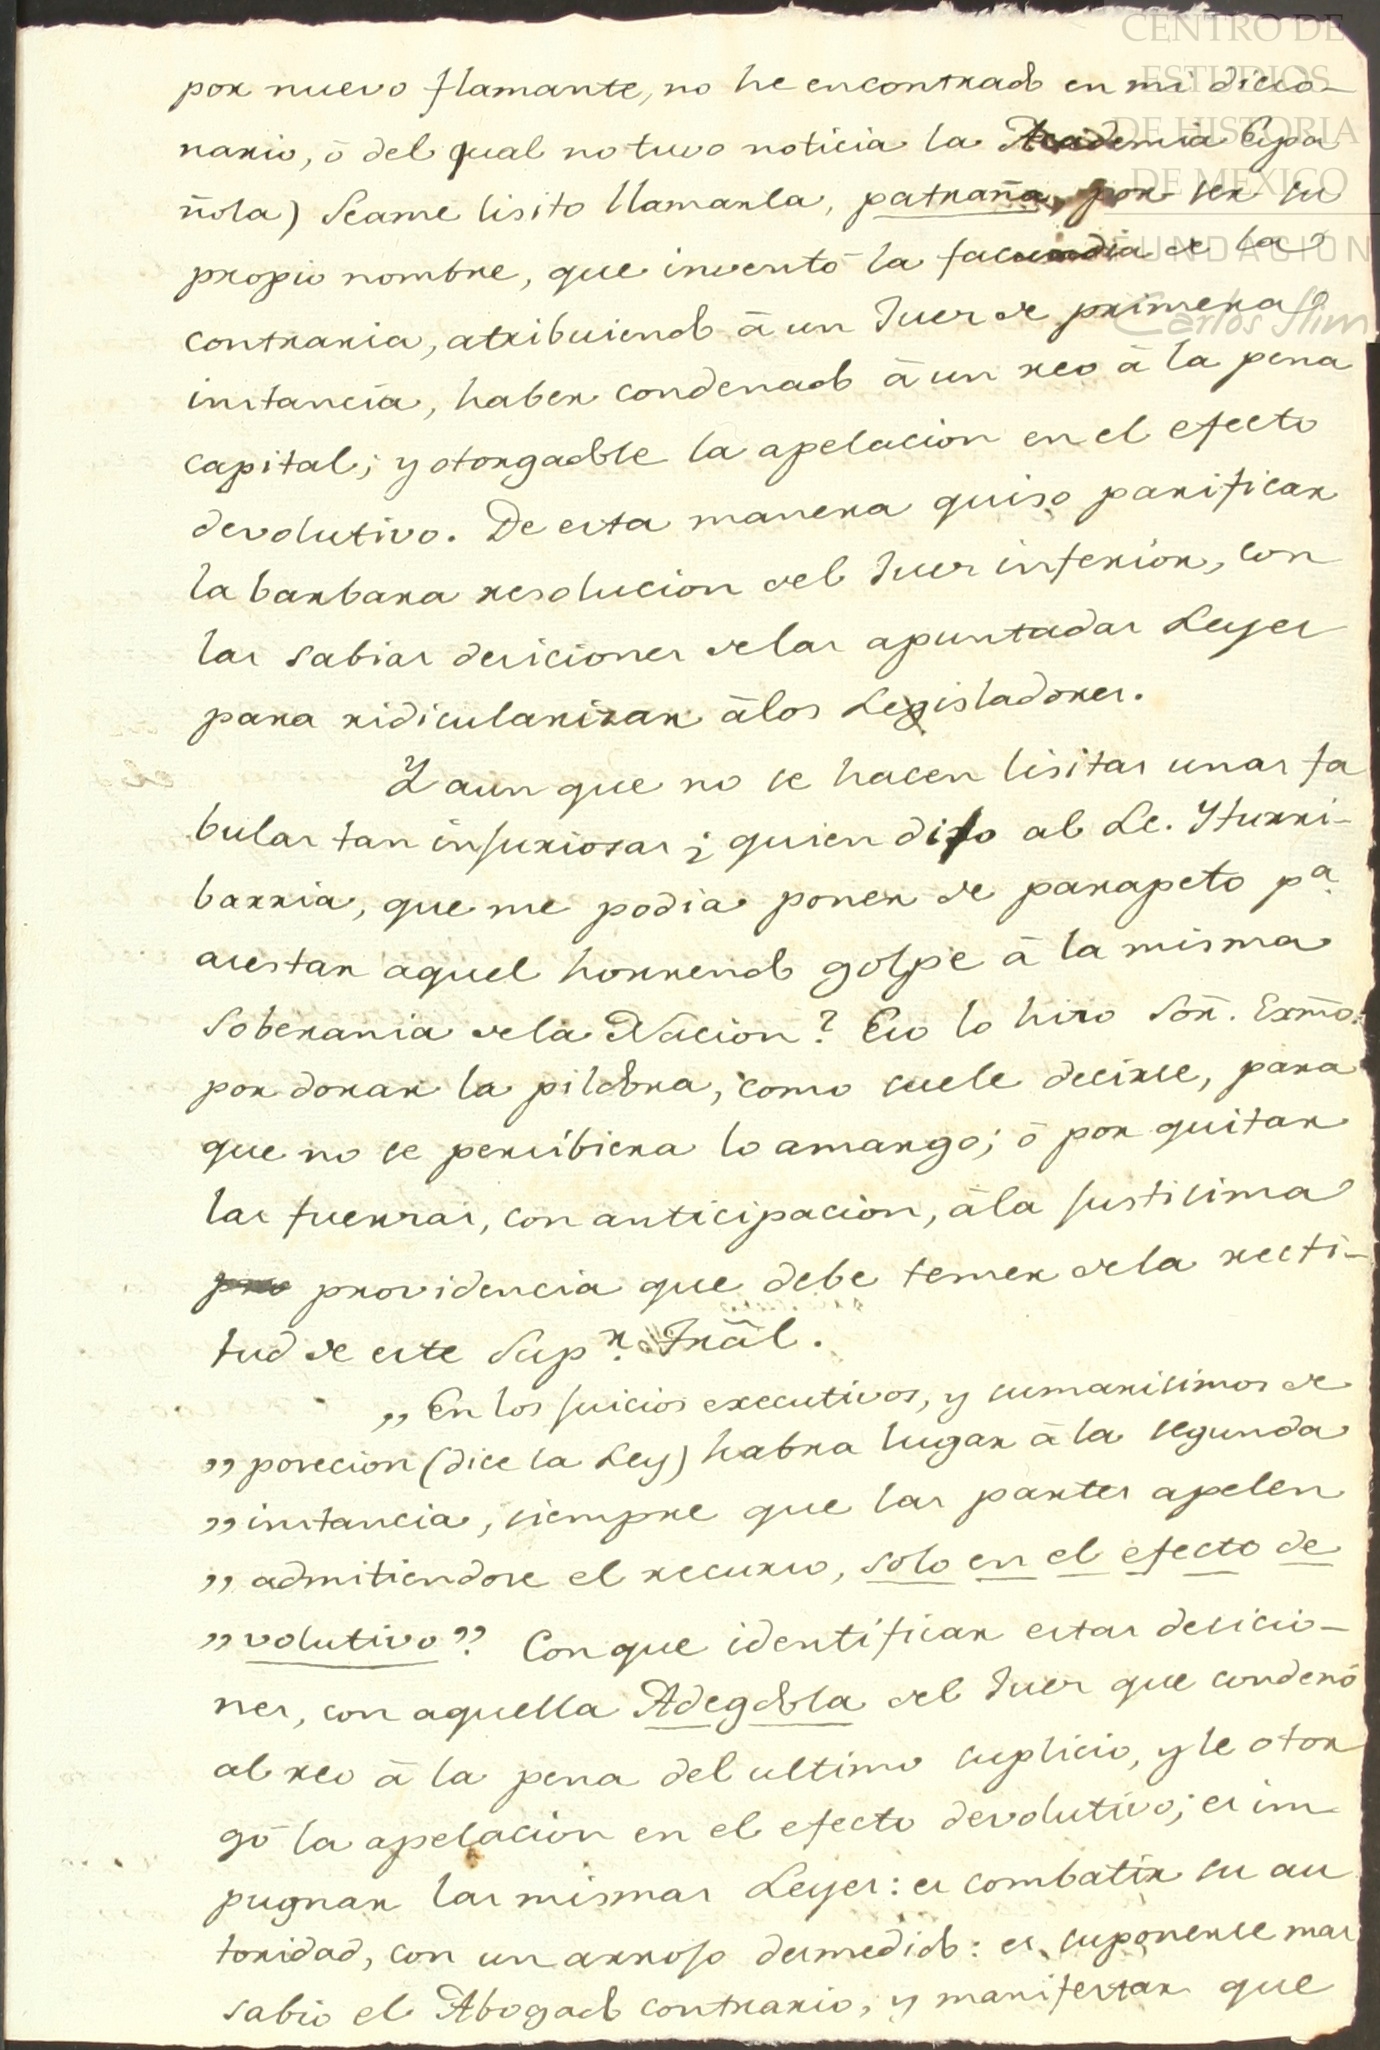 CENTRO DE
ESTUDIOS
DE HISTORIA
DE MEXICO
FUNDACION
Carlos Slim
por nuevo flamante, no he encontrado en mi diccio-
nario, ò del qual no tuvo noticia la Academia Espa
ñola) Seame lisito llamarla, patraña, por ser su
propio nombre, que inventò la facundia de la
contraria, atribuiendo à un Juez de primera
instancia, haber condenado à un reo à la pena
capital; y otorgadole la apelacion en el efecto
devolutivo. De esta manera quiso parificar
la barbara resolucion del Juez inferior, con
las sabias deciciones de las apuntadas Leyes
para ridicularizar à los Legisladores.
Y aun que no se hacen lisitas unas fa
bulas tan injuriosas ¿ quien dijo al Lc. Yturri-
barria, que me podia poner de parapeto pa.
acestar aquel horrendo golpe à la misma
Soberania de la Nacion? Eso lo hizo Sor. Exmo.
por dorar la pildora, como suele decirse, para
que no se percibiera lo amargo; ò por quitar
las fuerzas, con anticipacion, à la justicima
pro providencia que debe temer de la recti-
tud de este Supr. Tral.
„ En los juicios executivos, y sumaricimos de
„ poseción (dice la Ley) habra lugar à la segunda
„ instancia, siempre que las partes apelen
„ admitiendose el recurso, solo en el efecto de
„ volutivo” Con que identificar estas decicio-
nes, con aquella Adegdola del Juez que condenò
al reo à la pena del ultimo suplicio, y le otor
gò la apelación en el efecto devolutivo; es im
pugnar las mismas Leyes: es combatir su au
toridad, con un arrojo desmedido: es suponerse mas
sabio el Abogado contrario, y manifestar que